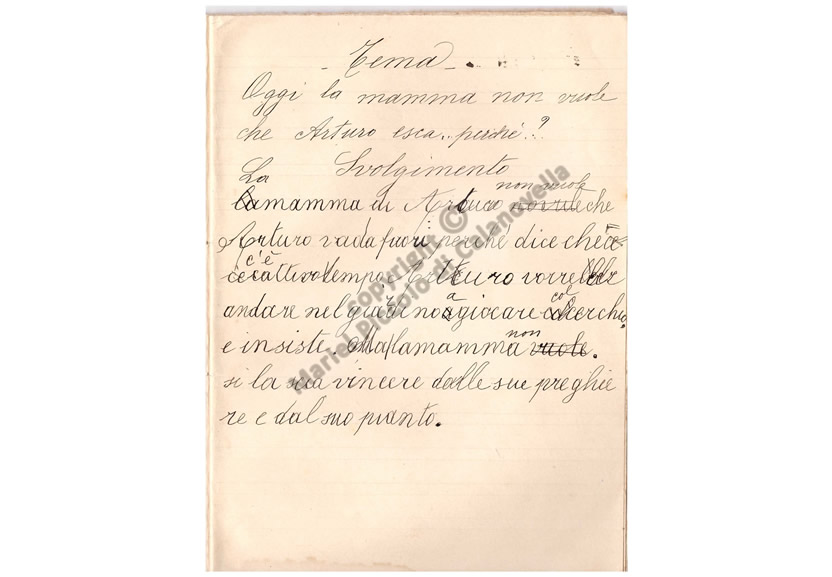 Tema
Oggi la mamma non vuole
che Arturo esca.. perchè.?
Svolgimento
La
lamamma di Arturo non vuole che
Arturo vada fuori perché dice che
c'è
cattivo tempo. Arturo
andare nel giardino a giocare col cerchio
e insiste. Ma la mamma non vuole.
si la scia vincere dalle sue preghie
re e dal suo pianto.
copyright ©
Mariel Piccolo di Calanovella